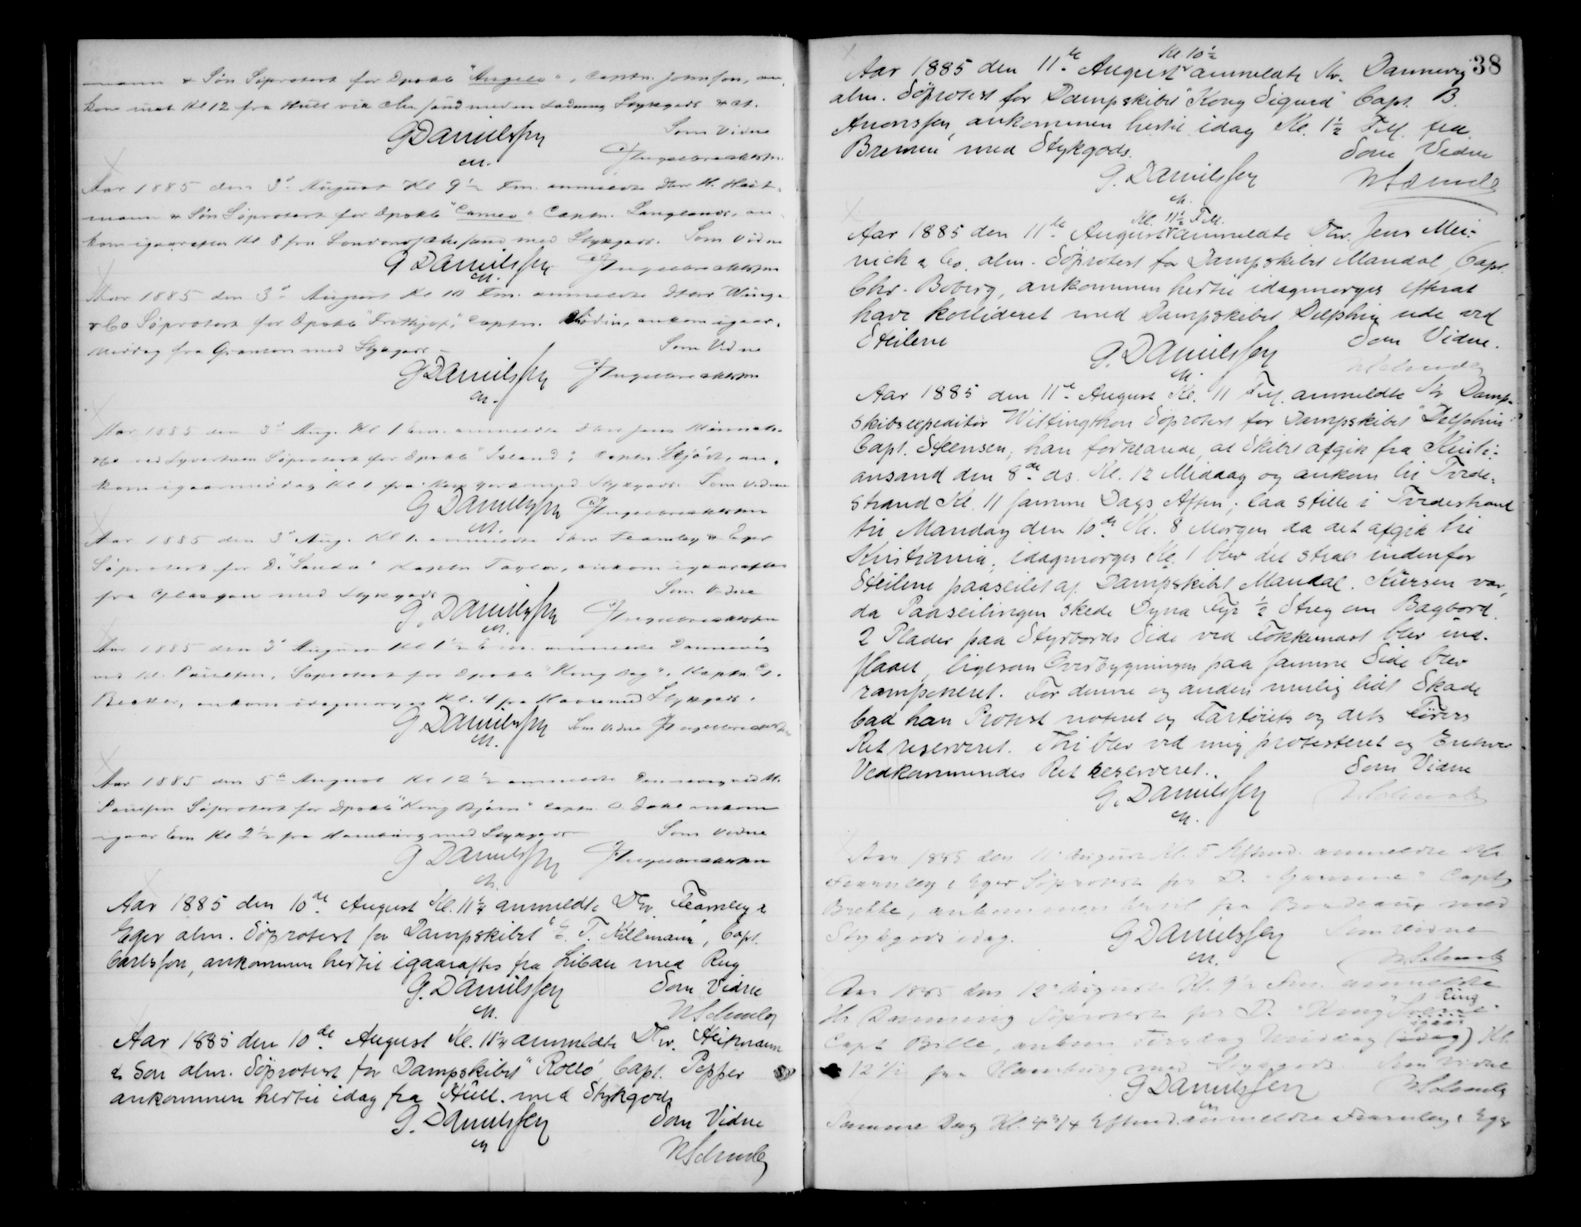 mann & Søn Søprotest for Dpskb "Angelo", Captn. Johnson, an-
kom inat Kl 12 fra Hull via Chr.sand med en Ladning Stykgods
GDanielsen Som Vidne
m. Ingebrechtsen
Aar 1885 den 3d August Kl 9½ Fm. anmeldte Hrr H. Heit-
mann & Søn Søprotest for Dpskb "Cameo" Captn. Langlands, an-
kom igaaraftes Kl. 8 fra London Chr.sand med Stykgods. Som Vidne
G Danielsen Ingebrechtsen
m.
Aar 1885 den 3d August Kl 10 Fm. anmeldte Hrr Wing-
& Co Søprotest for Dpskb "Frithjof", Captn. ankom igaar-
middag fra Granton med Stykgods Som Vidne
GDanielsen Ingebrechtsen
m.
Aar 1885 den 3d Aug. Kl 1 Em. anmeldte Hrr Jens Meinich
Søprotest for Dpskb "Island", Captn Skjødt, an-
kom igaarmiddag Kl. 1 fra med Stykgods. Som Vidne
G Danielsen Ingebrechtsen
m.
Aar 1885 den 3d Aug. Kl 1. anmeldte Hrr Fearnley & Eger
Søprotest for D. "Sanda" Captn Taylor, ankom igaaraftes
fra Glasgow med Stykgods Som Vidne
G. Danielsen Ingebrechtsen
m.
Aar 1885 den 3d August Kl 1½ Em. anmeldte Dannevig
ved M. Paulsen, Søprotest for Dpskb "Kong Dag", Captn
ankom idagmorges Kl. 4 fra Havre med Stykgods.
G Danielsen Som Vidne Ingebrechtsen
m.
Aar 1885 den 5te August Kl 12½ anmeldte Dannevig ved M.
Paulsen Søprotest for Dpskb "Kong Bjørn" Captn. O. Dahl ankom
igaar Em Kl 2½ fra Hamburg med Stykgods Som Vidne
G Danielsen Ingebrechtsen
m.
Aar 1885 den 10de August Kl. 11¼ anmeldte D'Hrr. Fearnley &
Eger alm. Søprotest for Dampskibet "C. F. Killmann", Capt.
Carlsson, ankommen hertil igaaraftes fra Libau med Rug
G. Danielsen Som Vidne
m.
Aar 1885 den 10de August Kl. anmeldte D'Hrr. Heitmann
& Søn alm. Søprotest for Dampskibet "Rollo" Capt. Pepper
ankommen hertil idag fra Hull med Stykgods
G. Danielsen Som Vidne
m
38
Kl 10½
Aar 1885 den 11te August anmeldte Hr. Dannevig
alm. Søprotest for Dampskibet "Kong Sigurd" Capt. B.
Aronssen, ankommen hertil idag Kl. 1½ F.M. fra
Bremen med Stykgods. Som Vidne
G. Danielsen
m.
Kl. 11½ F.M.
Aar 1885 den 11te August anmeldte D'Hrr. Jens Mei-
nich & Co. alm. Søprotest for Dampskibet Mandal, Capt.
Chr. Boberg, ankommen hertil idagmorges efterat
have kollideret med Dampskibet Delphin ude ved
Steilene Som Vidne.
G. Danielsen
m.
Aar 1885 den 11te August Kl. 11 F.M. anmeldte Hr Damp-
skibsexpeditør Wittingthon Søprotest for Dampskibet "Delphin"
Capt. Stensen, han forklarede, at Skibet afgik fra Kristi-
ansand den 8de ds. Kl. 12 Middag og ankom til Tvede-
strand Kl. 11 samme Dags Aften; laa stille i Tvedestrand
til Mandag den 10de Kl. 8 Morgen da det afgik til
Kristiania; idagmorges Kl. 1 blev det strax indenfor
Steilene paaseilet af Dampskibet Mandal. Kursen var,
da Paaseilingen skede Dyna Fyr ½ Streg om Bagbord.
2 Plader paa Styrbords Side ved Fokkemast blev ind-
slaaet, ligesom Overbygningen paa samme Side blev
ramponeret. For denne og anden mulig lidt Skade
bad han Protest noteret og Fartøiets og dets Førers
Ret reserveret. Thi blev ved mig protesteret og Enhver
Vedkommendes Ret reserveret. Som Vidne
G. Danielsen
m.
Aar 1885 den 11 August Kl. 5 Efterm. anmeldte
Fearnley & Eger Søprotest for D. "Garonne" Capt.
Brekke, ankommen hertil fra Bordeaux med
Stykgods idag. G Danielsen Som Vidne
m.
Aar 1885 den 12 August Kl. 9½ Fm. anmeldte
Hr Dannevig Søprotest for D. "Kong Ring"
Capt. Bille, ankom Tirsdag Middag (igaar) Kl.
12½ fra Hamburg med Stykgods Som Vidne
G Danielsen
m
Samme Dag Kl. 4¾ Efterm. anmeldte Fearnley & Eger